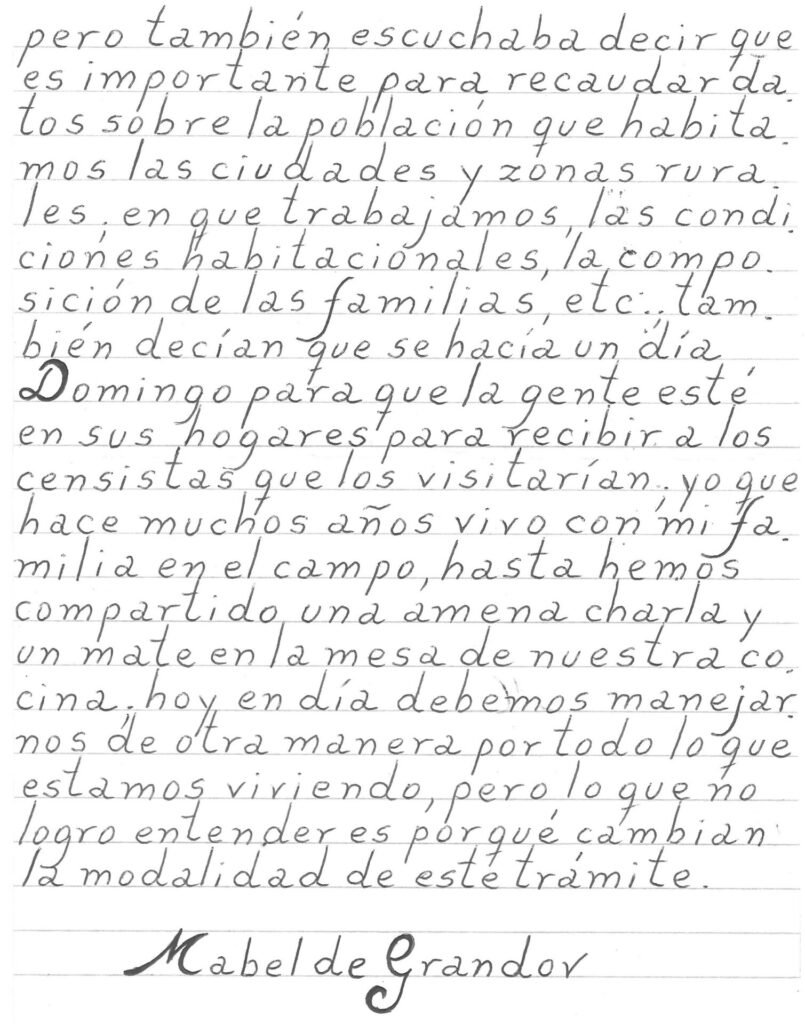 pero también escuchaba decir que
es importante para recaudar da.
tos sobre la población que habita.
mos las ciudades y zonas rura.
les, en que trabajamos, las condi.
ciones habitacionales, la compo.
sición de las familias, etc.; tam.
bién decían que se hacía un día
Domingo para que la gente esté
en sus hogares para recibir a los
censistas que los visitarían; yo que
hace muchos años vivo con mi fa.
milia en el campo, hasta hemos
compartido una amena charla y
un mate en la mesa de nuestra co.
cina; hoy en día debemos manejar.
nos de otra manera por todo lo que
estamos viviendo, pero lo que no
logro entender es porqué cambian
la modalidad de este trámite.
Mabel de Grandov